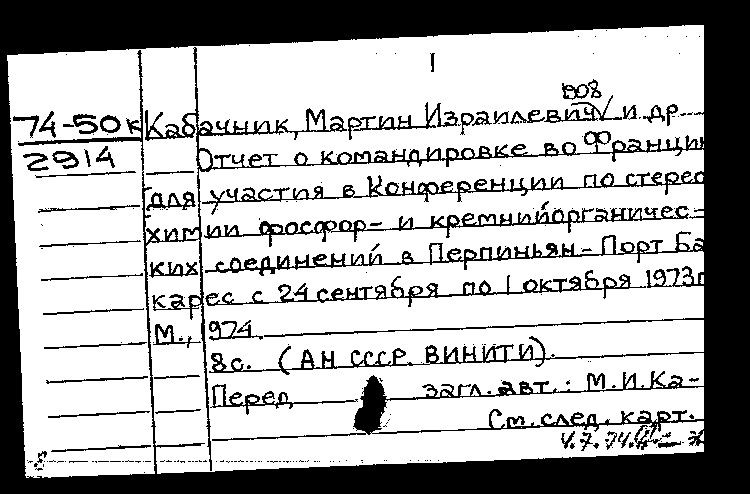 I
1908
74-50к Кабачник, Мартин Израилевич и др.
2914 Отчет о командировке во Франци
для участия в Конференции по стерео
химии фосфор- и кремнийорганичес-
ких соединений в Перпиньян-Порт Ба
карес с 24 сентября по 1 октября 1973г
М., 1974.
8с. (АН СССР. ВИНИТИ).
Перед загл. авт.: М.И.Ка-
См. след. карт.
4.7.74